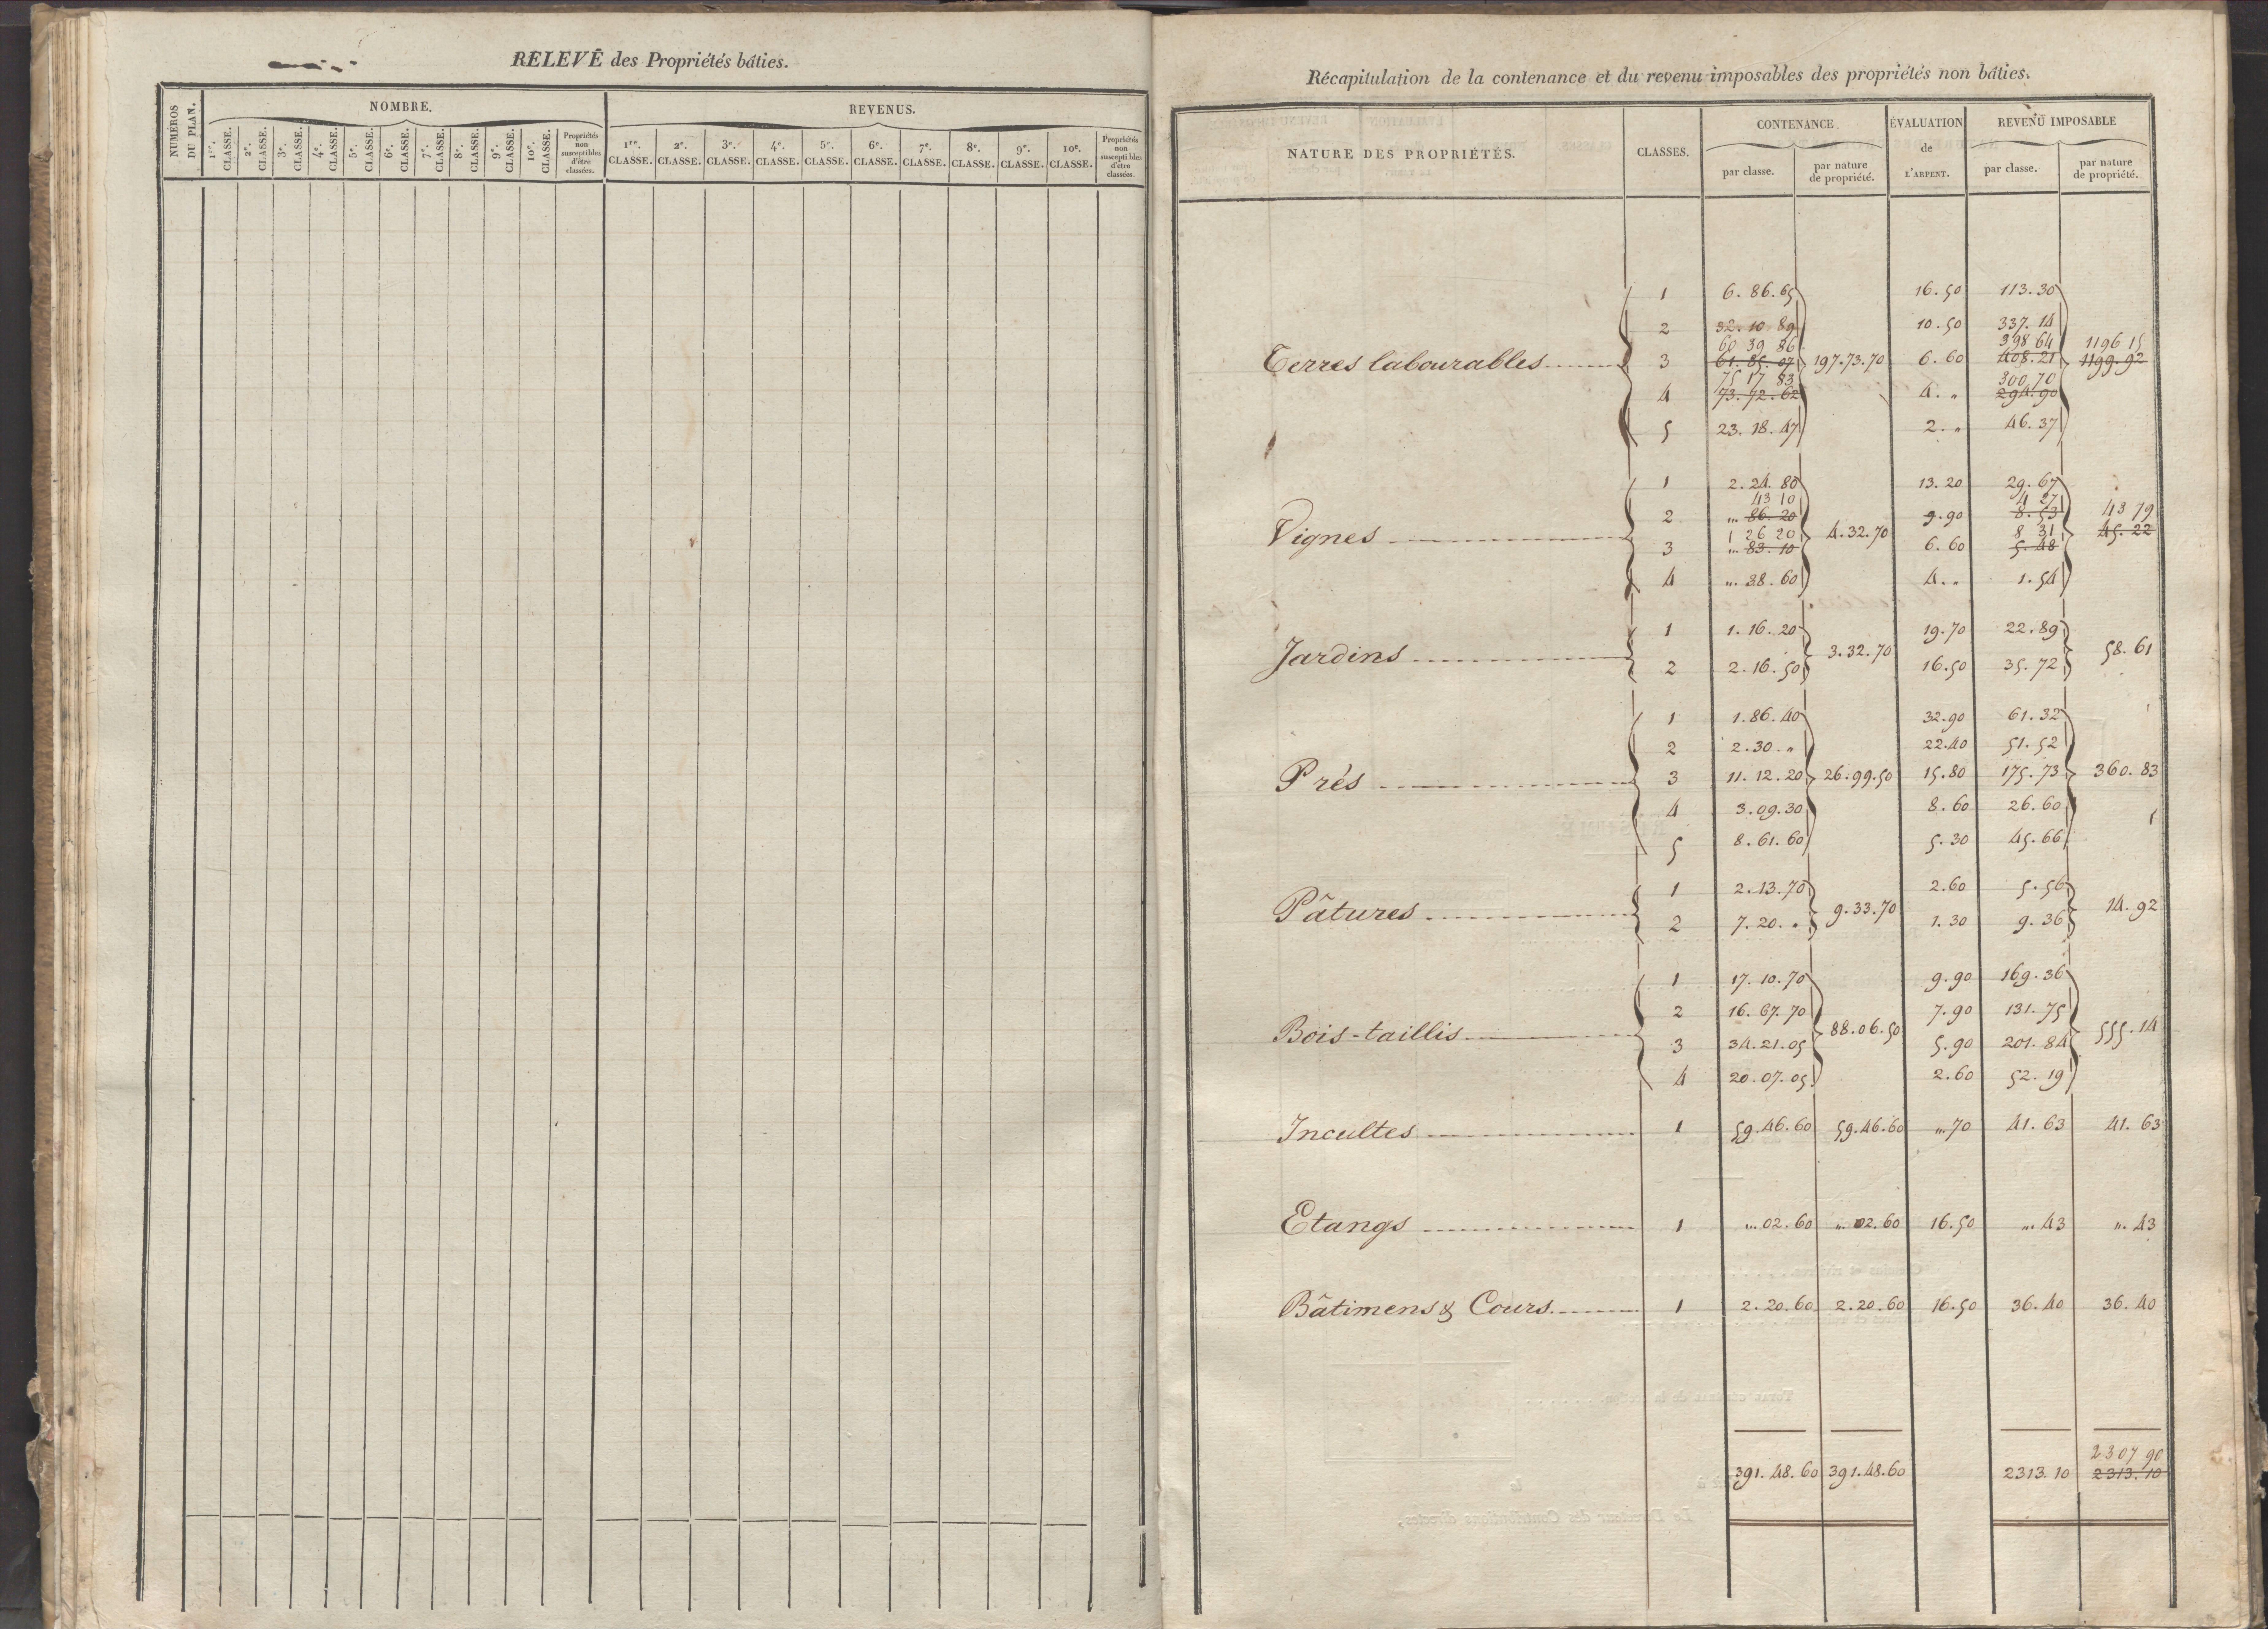 RELEVÉ des Propriétés bâties.
NUMÉROS DU PLAN.
NOMBRE.
REVENUS.
1re. CLASSE. 2e. CLASSE. 3e. CLASSE. 4e. CLASSE. 5e. CLASSE. 6e. CLASSE. 7e. CLASSE. 8e. CLASSE. 9e. CLASSE. 10e. CLASSE. Propriétés non susceptibles d'être classées.
1re. CLASSE. 2e. CLASSE. 3e. CLASSE. 4e. CLASSE. 5e. CLASSE. 6e. CLASSE. 7e. CLASSE. 8e. CLASSE. 9e. CLASSE. 10e. CLASSE. Propriétés non susceptibles d'être classées.
Récapitulation de la contenance et du revenu imposables des propriétés non bâties.
NATURE DES PROPRIÉTÉS. CLASSES. CONTENANCE ÉVALUATION de L'ARPENT. REVENU IMPOSABLE
par classe. par nature de propriété. par classe. par nature de propriété.
1 6. 86. 65 16. 50 113. 30
2 32. 10 89 10. 50 337. 14
60 39 86 398 64 1196 15
Terres labourables 3 61. 85. 07 197. 73. 70 6. 60 408. 21 1199. 92
75 17 83 300 70
4 73. 72. 62 4. " 294. 90
5 23. 18. 47 2. " 46. 37
1 2. 24. 80 13. 20 29. 67
43 10 4 27
2 ... 86. 20 9. 90 8. 53 43 79
Vignes 1 26 20 4. 32. 70 8 31 45. 22
3 ... 83. 10 6. 60 5. 48
4 ... 38. 60 4. " 1. 54
1 1. 16. 20 19. 70 22. 89
Jardins 3. 32. 70 58. 61
2 2. 16. 50 16. 50 35. 72
1 1. 86. 40 32. 90 61. 32
2 2. 30. " 22. 40 51. 52
Prés 3 11. 12. 20 26. 99. 50 15. 80 175. 73 360. 83
4 3. 09. 30 8. 60 26. 60
5 8. 61. 60 5. 30 45. 66
1 2. 13. 70 2. 60 5. 56
Pâtures 9. 33. 70 14. 92
2 7. 20. " 1. 30 9. 36
1 17. 10. 70 9. 90 169. 36
2 16. 67. 70 7. 90 131. 75
Bois-taillis 88. 06. 50 555. 14
3 34. 21. 05 5. 90 201. 84
4 20. 07. 05 2. 60 52. 19
Incultes 1 59. 46. 60 59. 46. 60 ... 70 41. 63 41. 63
Etangs 1 ... 02. 60 ... 02. 60 16. 50 ... 43 ". 43
Bâtimens & Cours. 1 2. 20. 60 2. 20. 60 16. 50 36. 40 36. 40
2307 90
391. 48. 60 391. 48. 60 2313. 10 2313. 10